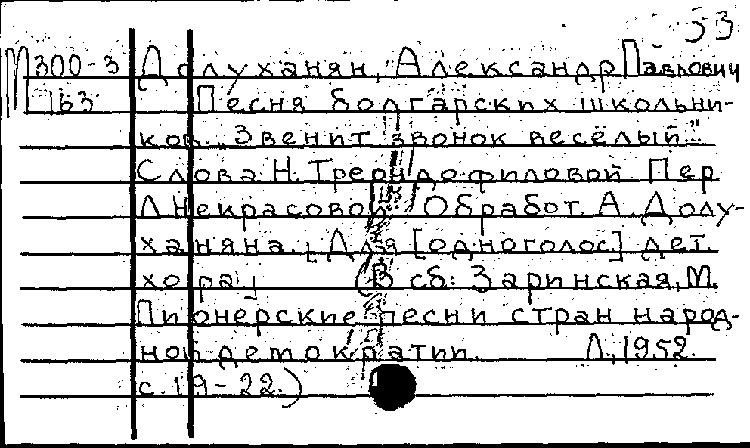 53
М300-3 Долуханян, Александр Павлович
П63 Песня болгарских школьни-
ков „Звенит звонок весёлый."
Слова Н. Трендофиловой Пер
Л Некрасовой Обработ. А. Долу-
ханяна. [Для [одноголос] дет.
хора] (В сб: Заринская, М.
Пионерские песни стран народ-
ной демократии. Л., 1952.
с. 19-22.)